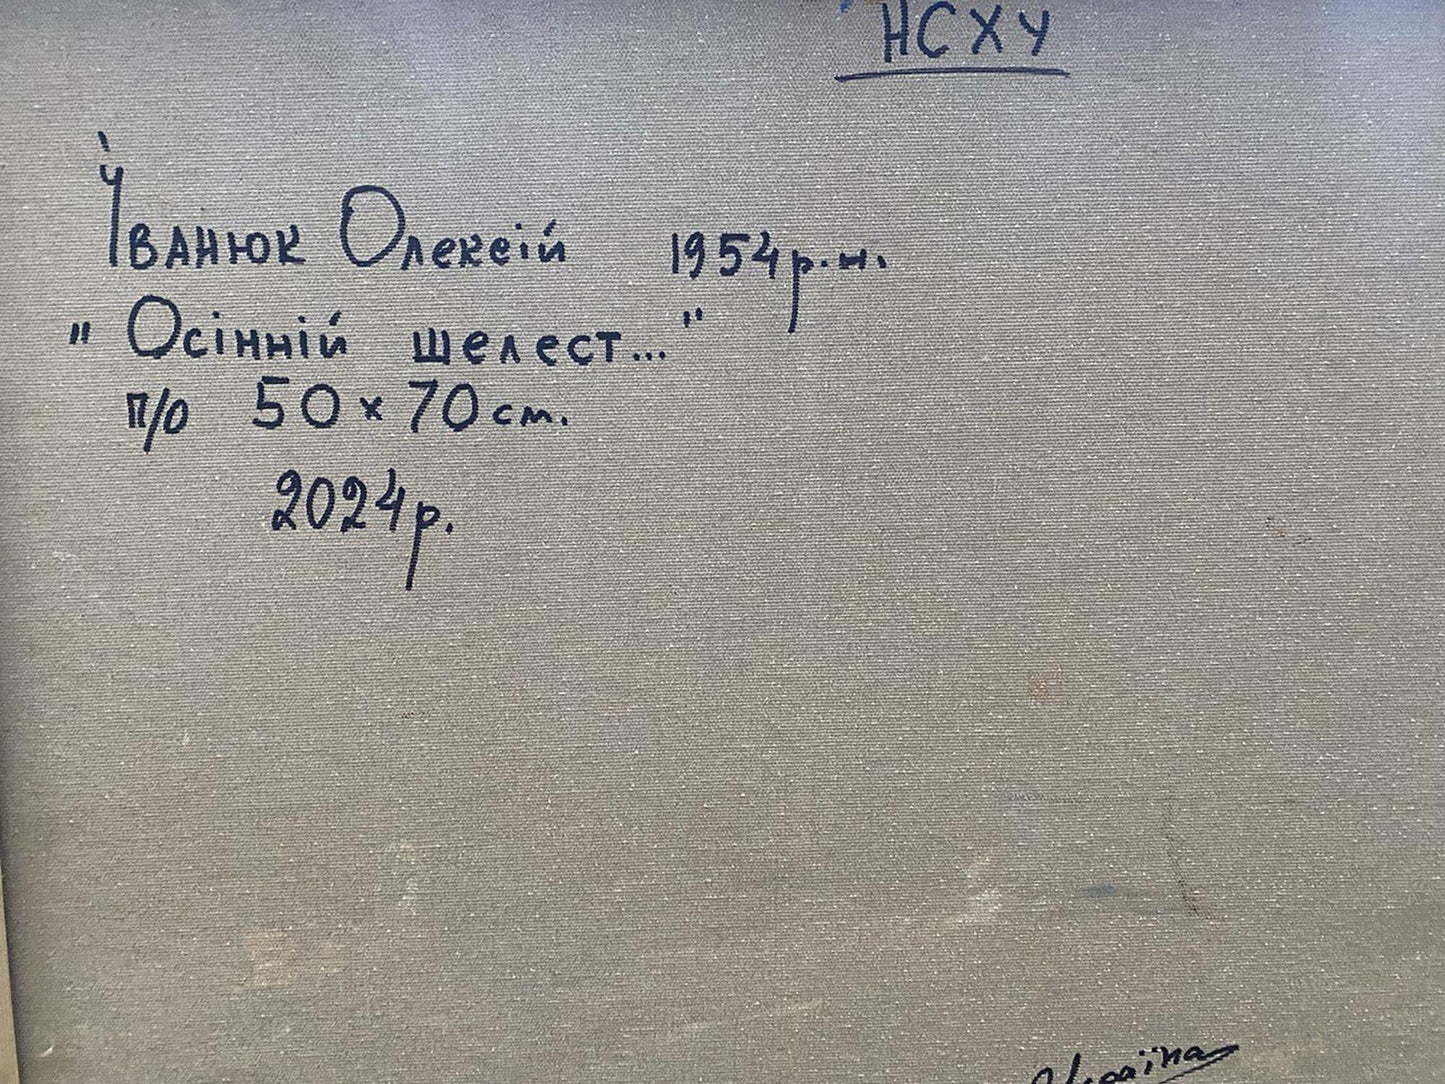 НСХУ
Іванюк Олексій 1954 р.н.
"Осінній шелест..."
п/о 50 х 70 см.
2024 р.
Україна